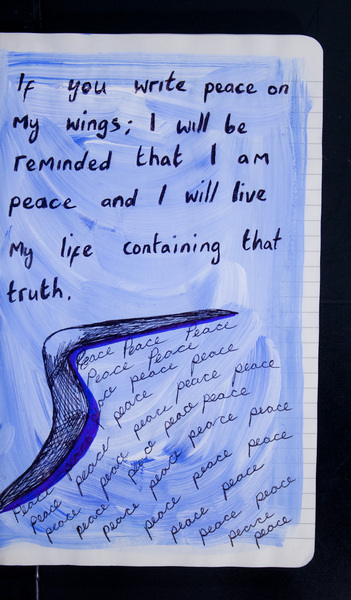 If you write peace on
My wings; I will be
reminded that I am
peace and I will live
My life containing that
truth.
Peace Peace Peace
Peace Peace
peace peace peace
peace peace peace
peace peace peace
peace peace peace peace
peace peace peace peace
peace peace peace peace
peace peace peace
peace peace
peace
peace